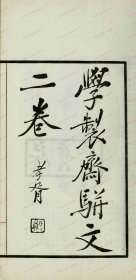 學製齋駢文
二卷
孝胥